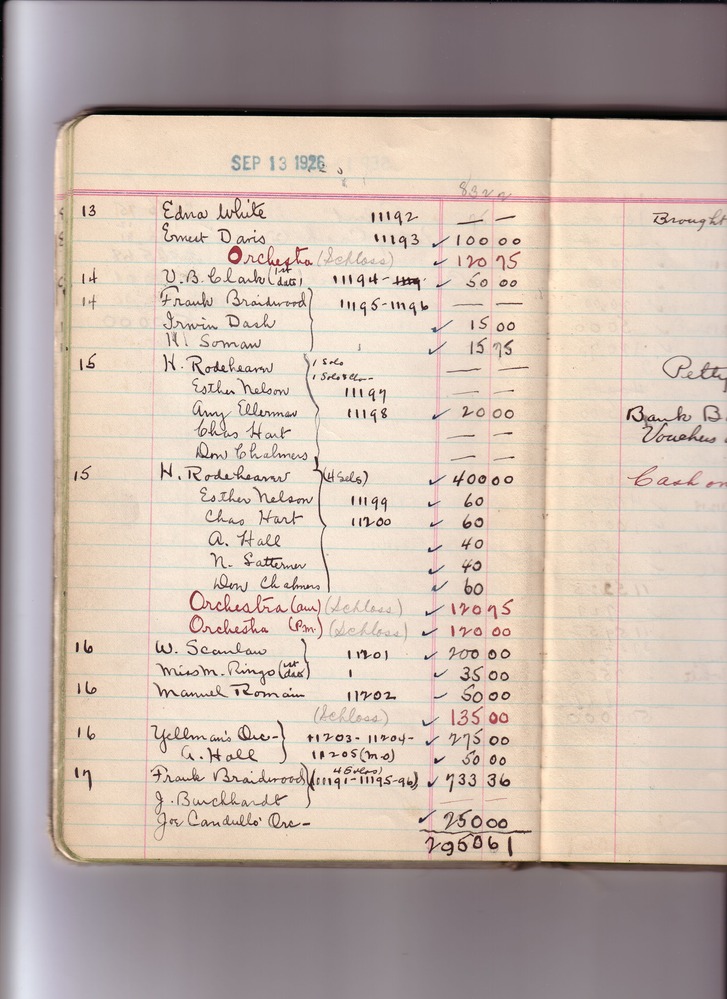 SEP 13 1926
832
13 Edna White 11192 — —
Ernest Davis 11193 ✓ 100 00
Orchestra (Schloss) ✓ 120 75
14 V. B. Clark (1st date) 11194- ✓ 50 00
14 Frank Braidwood 11195-11196 — —
Irwin Dash ✓ 15 00
H. Soman ✓ 15 75
15 H. Rodeheaver 1 Solo — —
1 Solo &
Esther Nelson 11197 — —
Amy Ellerman 11198 ✓ 20 00
Chas Hart — —
Don Chalmers — —
15 H. Rodeheaver (4 Sels) ✓ 400 00
Esther Nelson 11199 ✓ 60
Chas Hart 11200 ✓ 60
A. Hall ✓ 40
N. Satterner ✓ 40
Don Chalmers ✓ 60
Orchestra (am) (Schloss) ✓ 120 75
Orchestra (P.m.) (Schloss) ✓ 120 00
16 W. Scanlan 11201 ✓ 200 00
Miss M. Ringo (1st date) ✓ 35 00
16 Manuel Romain 11202 ✓ 50 00
(Schloss) ✓ 135 00
16 Yellman's Orc- 11203- 11204- ✓ 275 00
A. Hall 11205 (m.o) ✓ 50 00
17 Frank Braidwood (4 Solos) (11191-11195-96) ✓ 733 36
J. Burckhardt — —
Joe Candullo' Orc- ✓ 250 00
2950 61
Brought
Petty
Bank B
Vouchers
Cash on